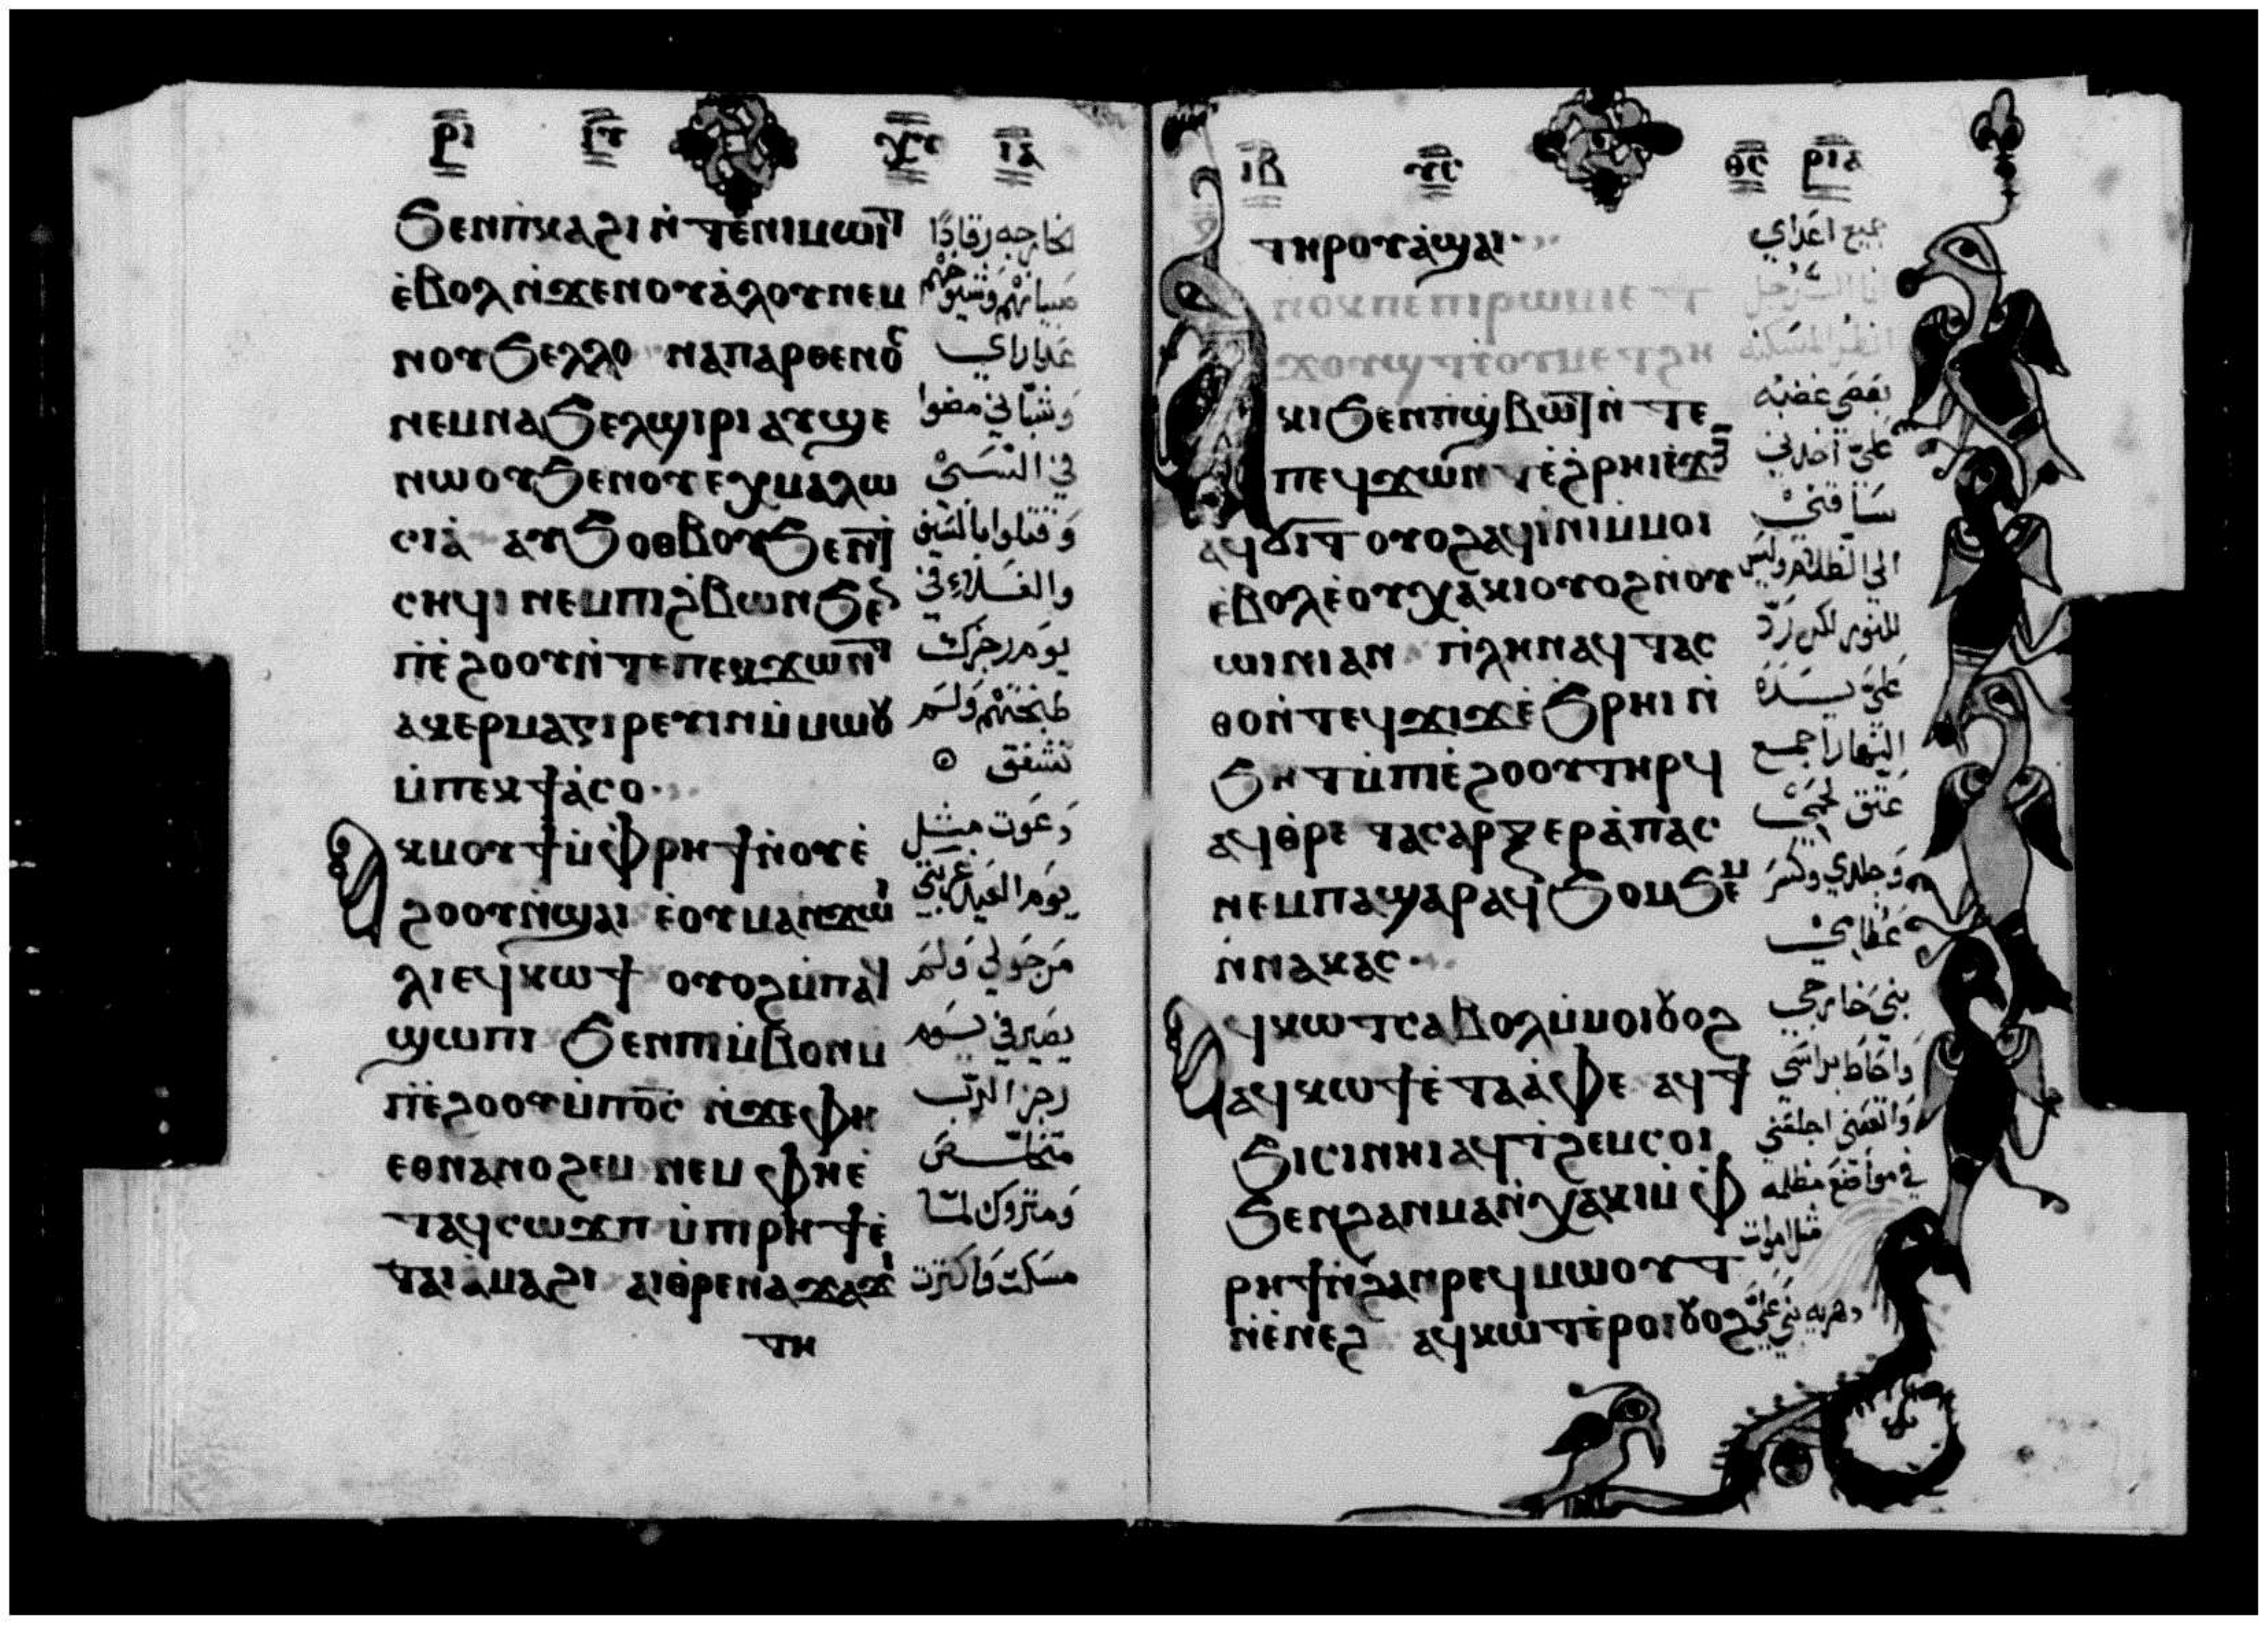 ⲣⲓ ⲓⲥ ⲭⲥ ⲓⲁ
ϧⲉⲛⲡ̀ⲕⲁϩⲓ ⲛ̀ⲧⲉⲛⲓⲙⲱⲓⲧ
ⲉ̀ⲃⲟⲗⲛ̀ϫⲉⲛⲟⲩⲁ̀ⲗⲟⲩⲛⲉⲙ
ⲛⲟⲩϧⲉⲗⲗⲟ ⲛⲁⲡⲁⲣⲑⲉⲛⲟⲥ
ⲛⲉⲙⲛⲁϧⲉⲗϣⲓⲣⲓ ⲁⲩϣⲉ
ⲛⲱⲟⲩϧⲉⲛⲟⲩⲉⲭⲙⲁⲗⲱ
ⲥⲓⲁ̀ ⲁⲩϧⲟⲑⲃⲟⲩϧⲉⲛϯ
ⲥⲏϥⲓ ⲛⲉⲙⲡⲓϩⲃⲱⲛϧⲉⲛ
ⲡⲓⲉ̀ϩⲟⲟⲩⲛ̀ⲧⲉⲡⲉⲕϫⲱⲛⲧ
ⲁⲕⲉⲣⲙⲁⲅⲓⲣⲉⲩⲓⲛⲙ̀ⲙⲱⲟⲩ
ⲙ̀ⲡⲉⲕϯⲁ̀ⲥⲟ
ⲁⲕⲙⲟⲩϯⲙ̀ⲫⲣⲏϯⲛ̀ⲟⲩⲉ̀
ϩⲟⲟⲩⲛ̀ϣⲁⲓ ⲉ̀ⲟⲩⲙⲁⲛϫⲱⲓ
ⲗⲓⲉϥⲕⲱϯ ⲟⲩⲟϩⲙ̀ⲡⲁϥ
ϣⲱⲡⲓ ϧⲉⲛⲡⲓⲙ̀ⲃⲟⲛⲙ
ⲡⲓⲉ̀ϩⲟⲟⲩⲙ̀ⲡⲟ̅ⲥ̅ ⲛ̀ϫⲉⲫⲏ
ⲉⲑⲛⲁⲛⲟϩⲉⲙ ⲛⲉⲙ ⲫⲏⲉ̀
ⲧⲁϥⲥⲱϫⲡ ⲙ̀ⲡⲓⲣⲏϯⲉ̀
ⲧⲁⲓⲁ̀ⲙⲁϩⲓ ⲁⲓⲑⲣⲉⲛⲁϫⲁϫⲓ
ⲧⲏ
خارجه رقادًا
صبيانهم وشيوخهم
عداراي
وشباني مضوا
في السبي
وقتلوا بالسيف
والغلاء في
يوم رجزك
طبختهم ولم
تشفق
دعوت مثل
يوم العيد
من حولي ولم
يصير في يوم
رجز الرب
متخلص
ومتروك لما
مسكت فاكثرت
ⲓⲃ ⲩⲥ ⲑⲥ ⲣⲓⲁ
ⲧⲏⲣⲟⲩⲁ̀ϣⲁⲓ
ⲁⲛⲟⲕⲡⲉⲡⲓⲣⲱⲙⲓⲉⲧ
ϫⲟⲩϣⲧⲉ̀ⲟⲩⲙⲉⲧϩⲏ
ⲕⲓϧⲉⲛⲡ̀ϣⲃⲱⲧⲛ̀ⲧⲉ
ⲡⲉϥϫⲱⲛⲧⲉ̀ϩⲣⲏⲓⲉ̀ϫⲱⲓ
ⲁϥϭⲓⲧ ⲟⲩⲟϩⲁϥⲓ̀ⲛⲓⲙ̀ⲙⲟⲓ
ⲉ̀ⲃⲟⲗⲉ̀ⲟⲩⲭⲁⲕⲓⲟⲩⲟϩⲛ̀ⲟⲩ
ⲱⲓⲛⲓⲁⲛ ⲡⲗⲏⲛⲁϥⲧⲁⲥ
ⲑⲟⲛ̀ⲧⲉϥϫⲓϫⲉ̀ϧⲣⲏⲓ ⲛ̀
ϧⲏⲧⲙ̀ⲡⲓⲉ̀ϩⲟⲟⲩⲧⲏⲣϥ
ⲁϥⲑⲣⲉ ⲧⲁⲥⲁⲣⲝⲉⲣⲁ̀ⲡⲁⲥ
ⲛⲉⲙⲡⲁϣⲁⲣ ⲁϥϧⲟⲙϧⲉⲙ
ⲛ̀ⲛⲁⲕⲁⲥ
ⲁϥⲕⲱⲧⲥⲁⲃⲟⲗⲙ̀ⲙⲟⲓⲟⲩⲟϩ
ⲁϥⲕⲱϯⲉ̀ⲧⲁⲁ̀ⲫⲉ ⲁϥϯ
ϧⲓⲥⲓⲛⲏⲓ ⲁϥⲧϩⲉⲙⲥⲟⲓ
ϧⲉⲛϩⲁⲛⲙⲁⲛ̀ⲭⲁⲕⲓⲙ̀ⲫ
ⲣⲏϯⲛ̀ϩⲁⲛⲣⲉϥⲙⲱⲟⲩⲧ
ⲛ̀ⲉⲛⲉϩ ⲁϥⲕⲱⲧⲉ̀ⲣⲟⲓⲟⲩⲟϩ
جميع اعداي
انا الرجل
انظر المسكنه
بقضي غضبه
علي اخدني
ساقني
الي الظلام وليس
للنور لكن رد
علي يده
النهار اجمع
عتق لحمي
وجلدي وكسر
عظامي
بني خارجي
واحاط براسي
واتعبني اجلسني
في مواضع مظلمه
مثل اموات